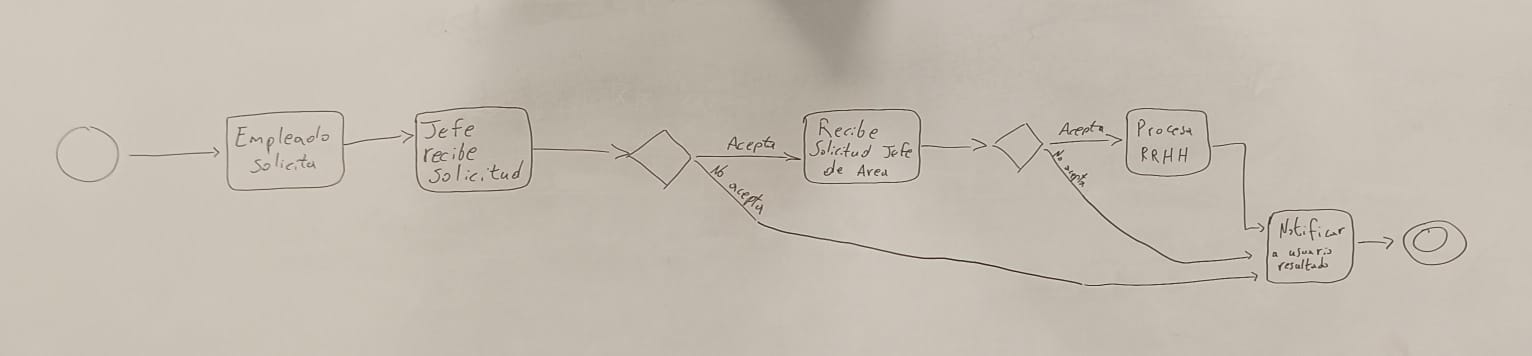 Empleado
Solicita
Jefe
recibe
Solicitud
Acepta
No acepta
Recibe
Solicitud Jefe
de Area
Acepta
No acepta
Procesa
RRHH
Notificar
a usuario
resultado